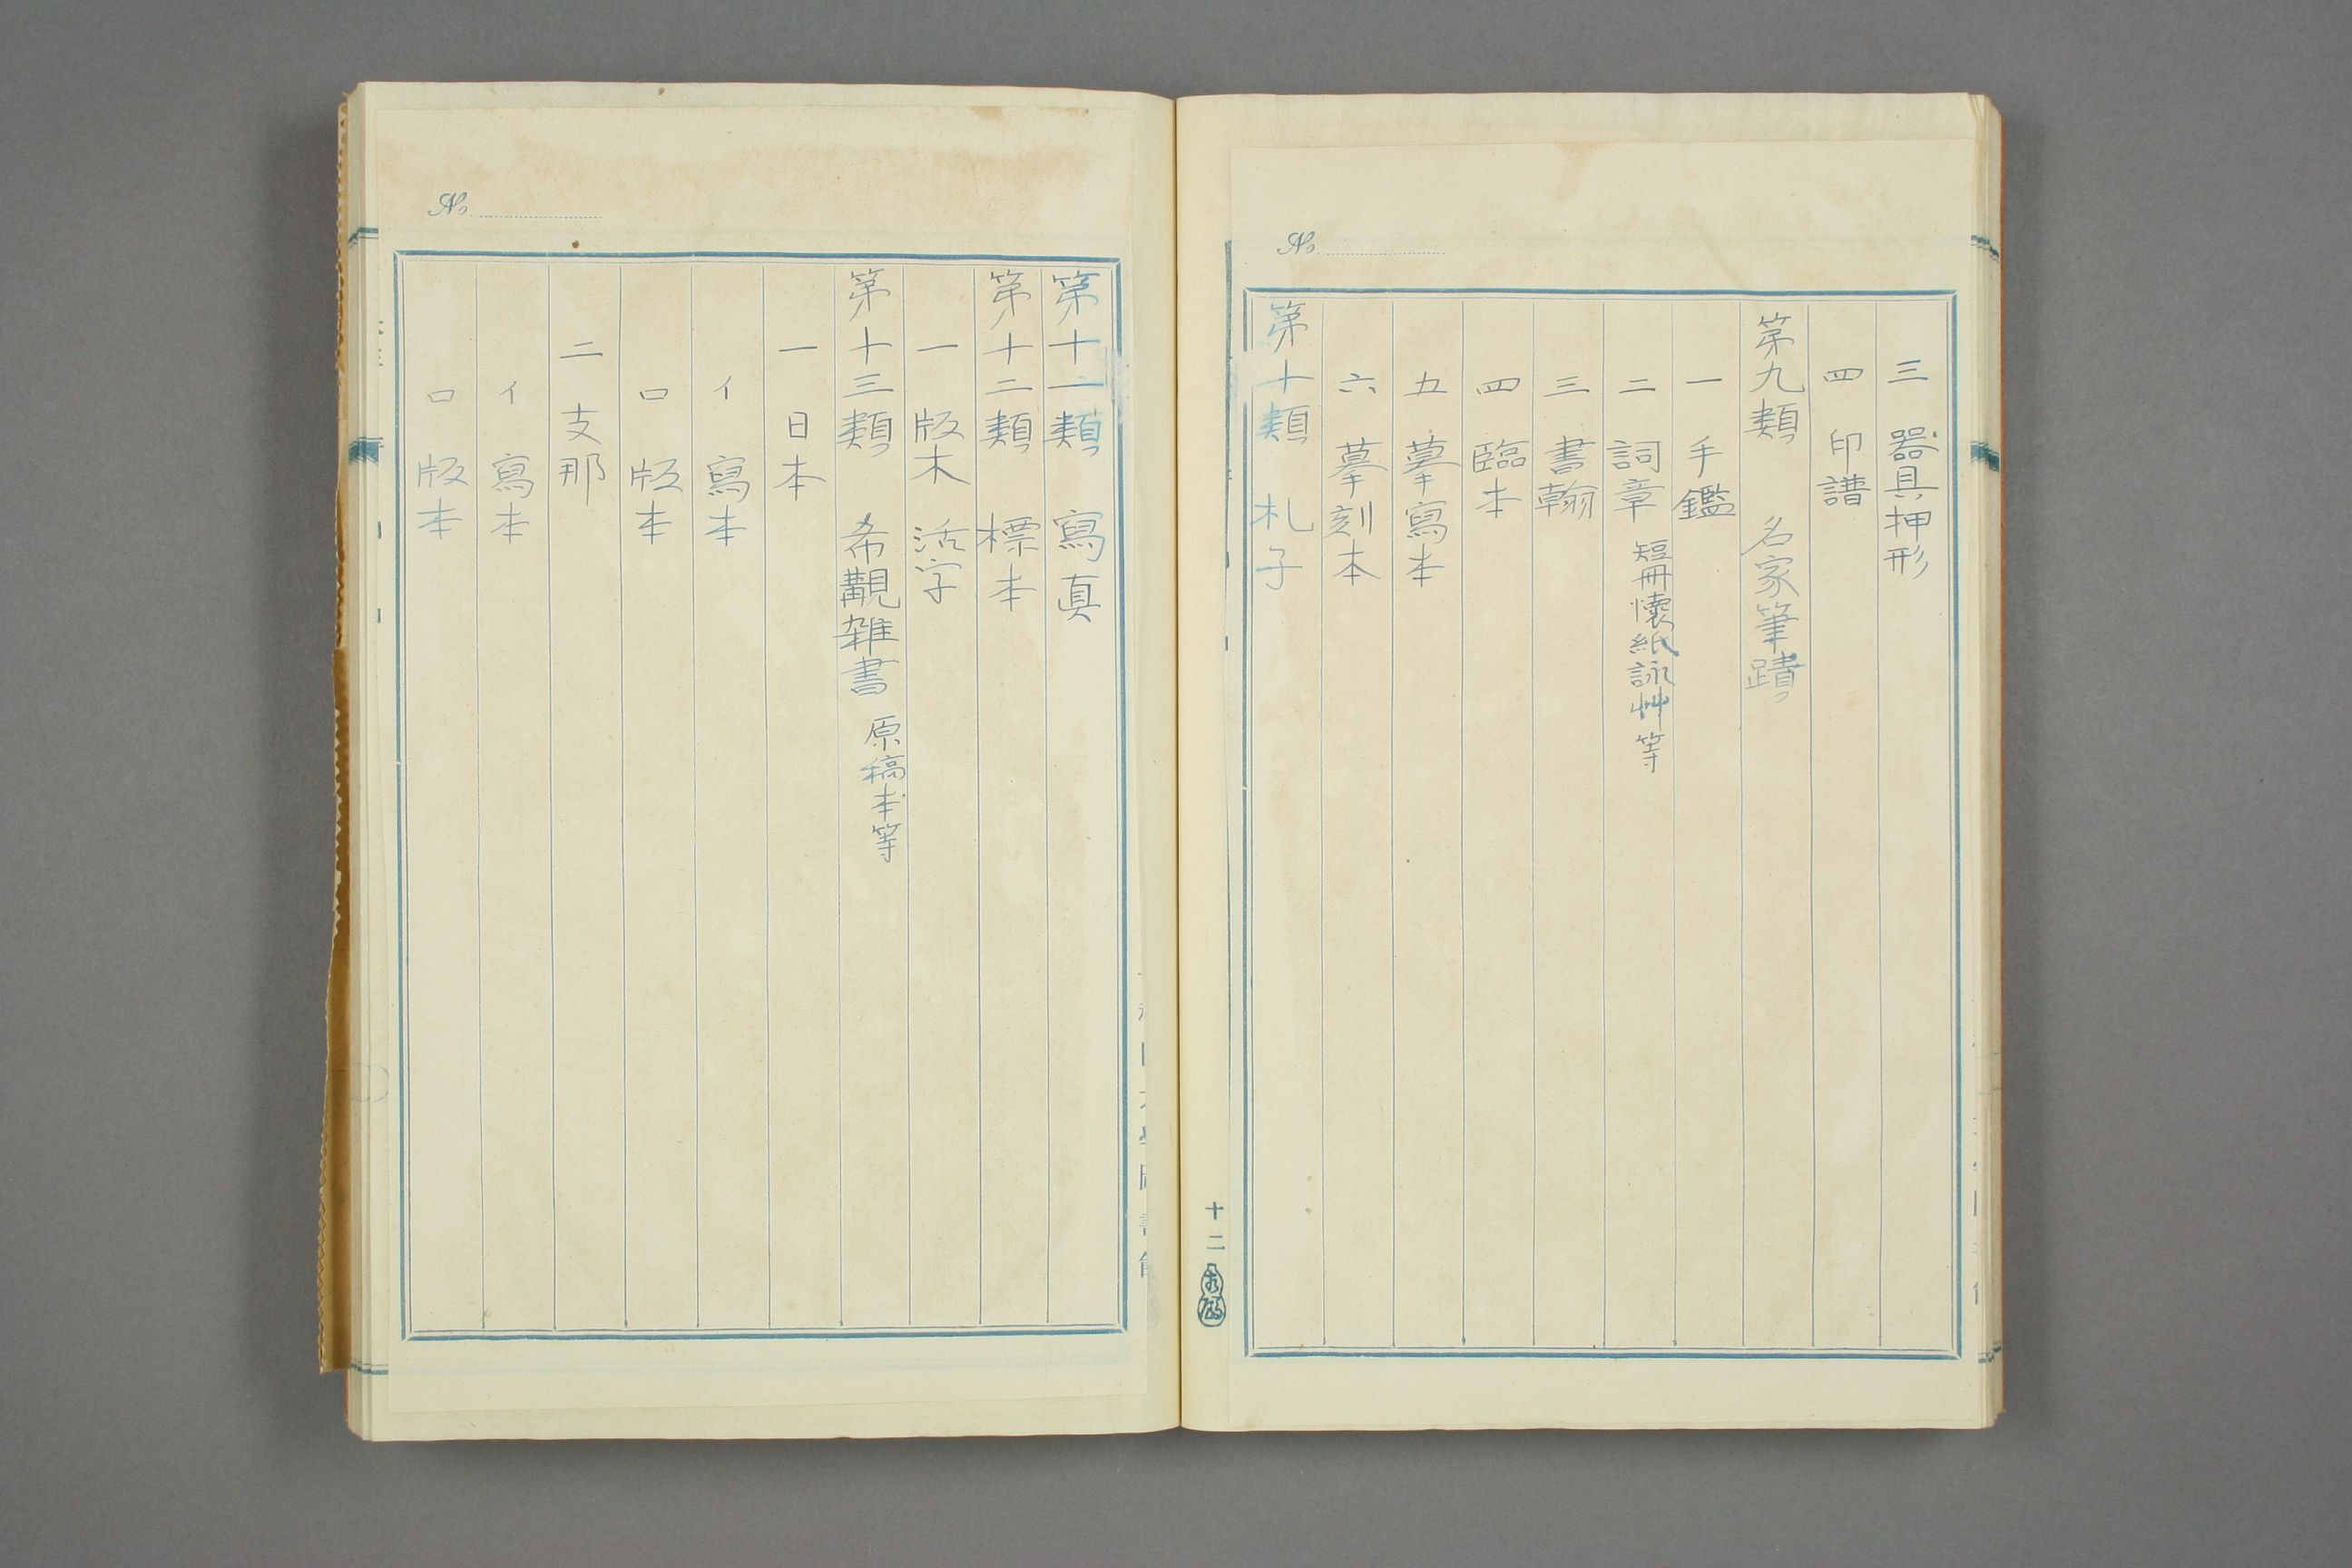 No.
三 器具押形
四 印譜
第九類 名家筆蹟
一 手鑑
二 詞章 短冊懐紙詠艸等
三 書翰
四 臨本
五 摹寫本
六 摹刻本
第十類 札子
十二
No.
第十一類 寫真
第十二類 標本
一 版木 活字
第十三類 希覯雑書 原稿本等
一 日本
イ 寫本
ロ 版本
二 支那
イ 寫本
ロ 版本